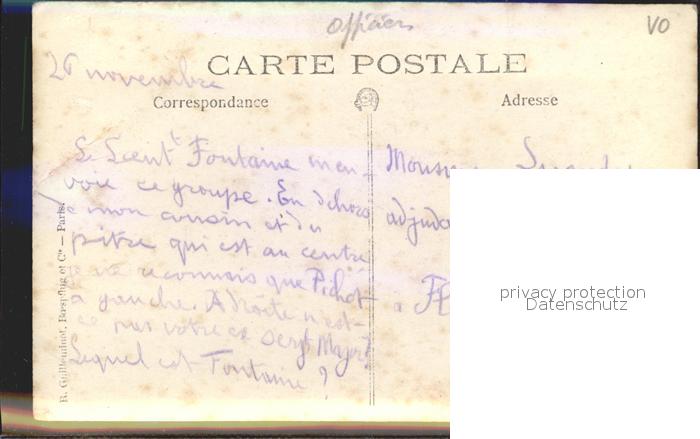 Officiers
VO
26 novembre
CARTE POSTALE
Correspondance
Adresse
Le Lieut^t Fontaine m'en-
voie ce groupe. En dehors
de mon cousin et du
pitre qui est au centre
je ne reconnais que Pichot
à gauche. A droite n'est-
ce pas votre ex serg^t Major?
Lequel est Fontaine ?
à
R. Guilleminot, Bœspflug et Cie — Paris.
privacy protection
Datenschutz